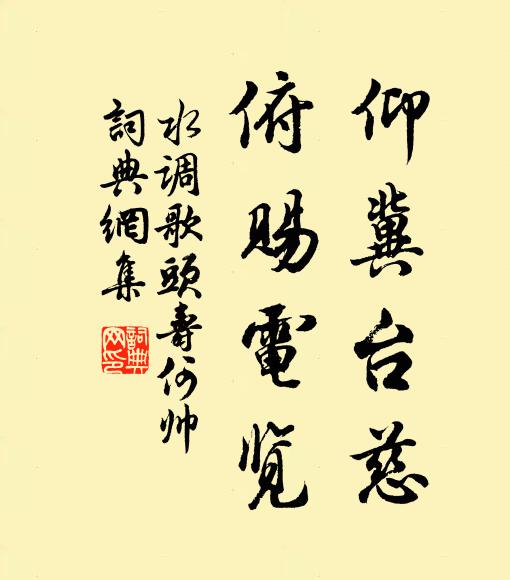 仰冀台慈
俯赐電覧
水调歌頭壽何帅
詞典網集
詞典网印